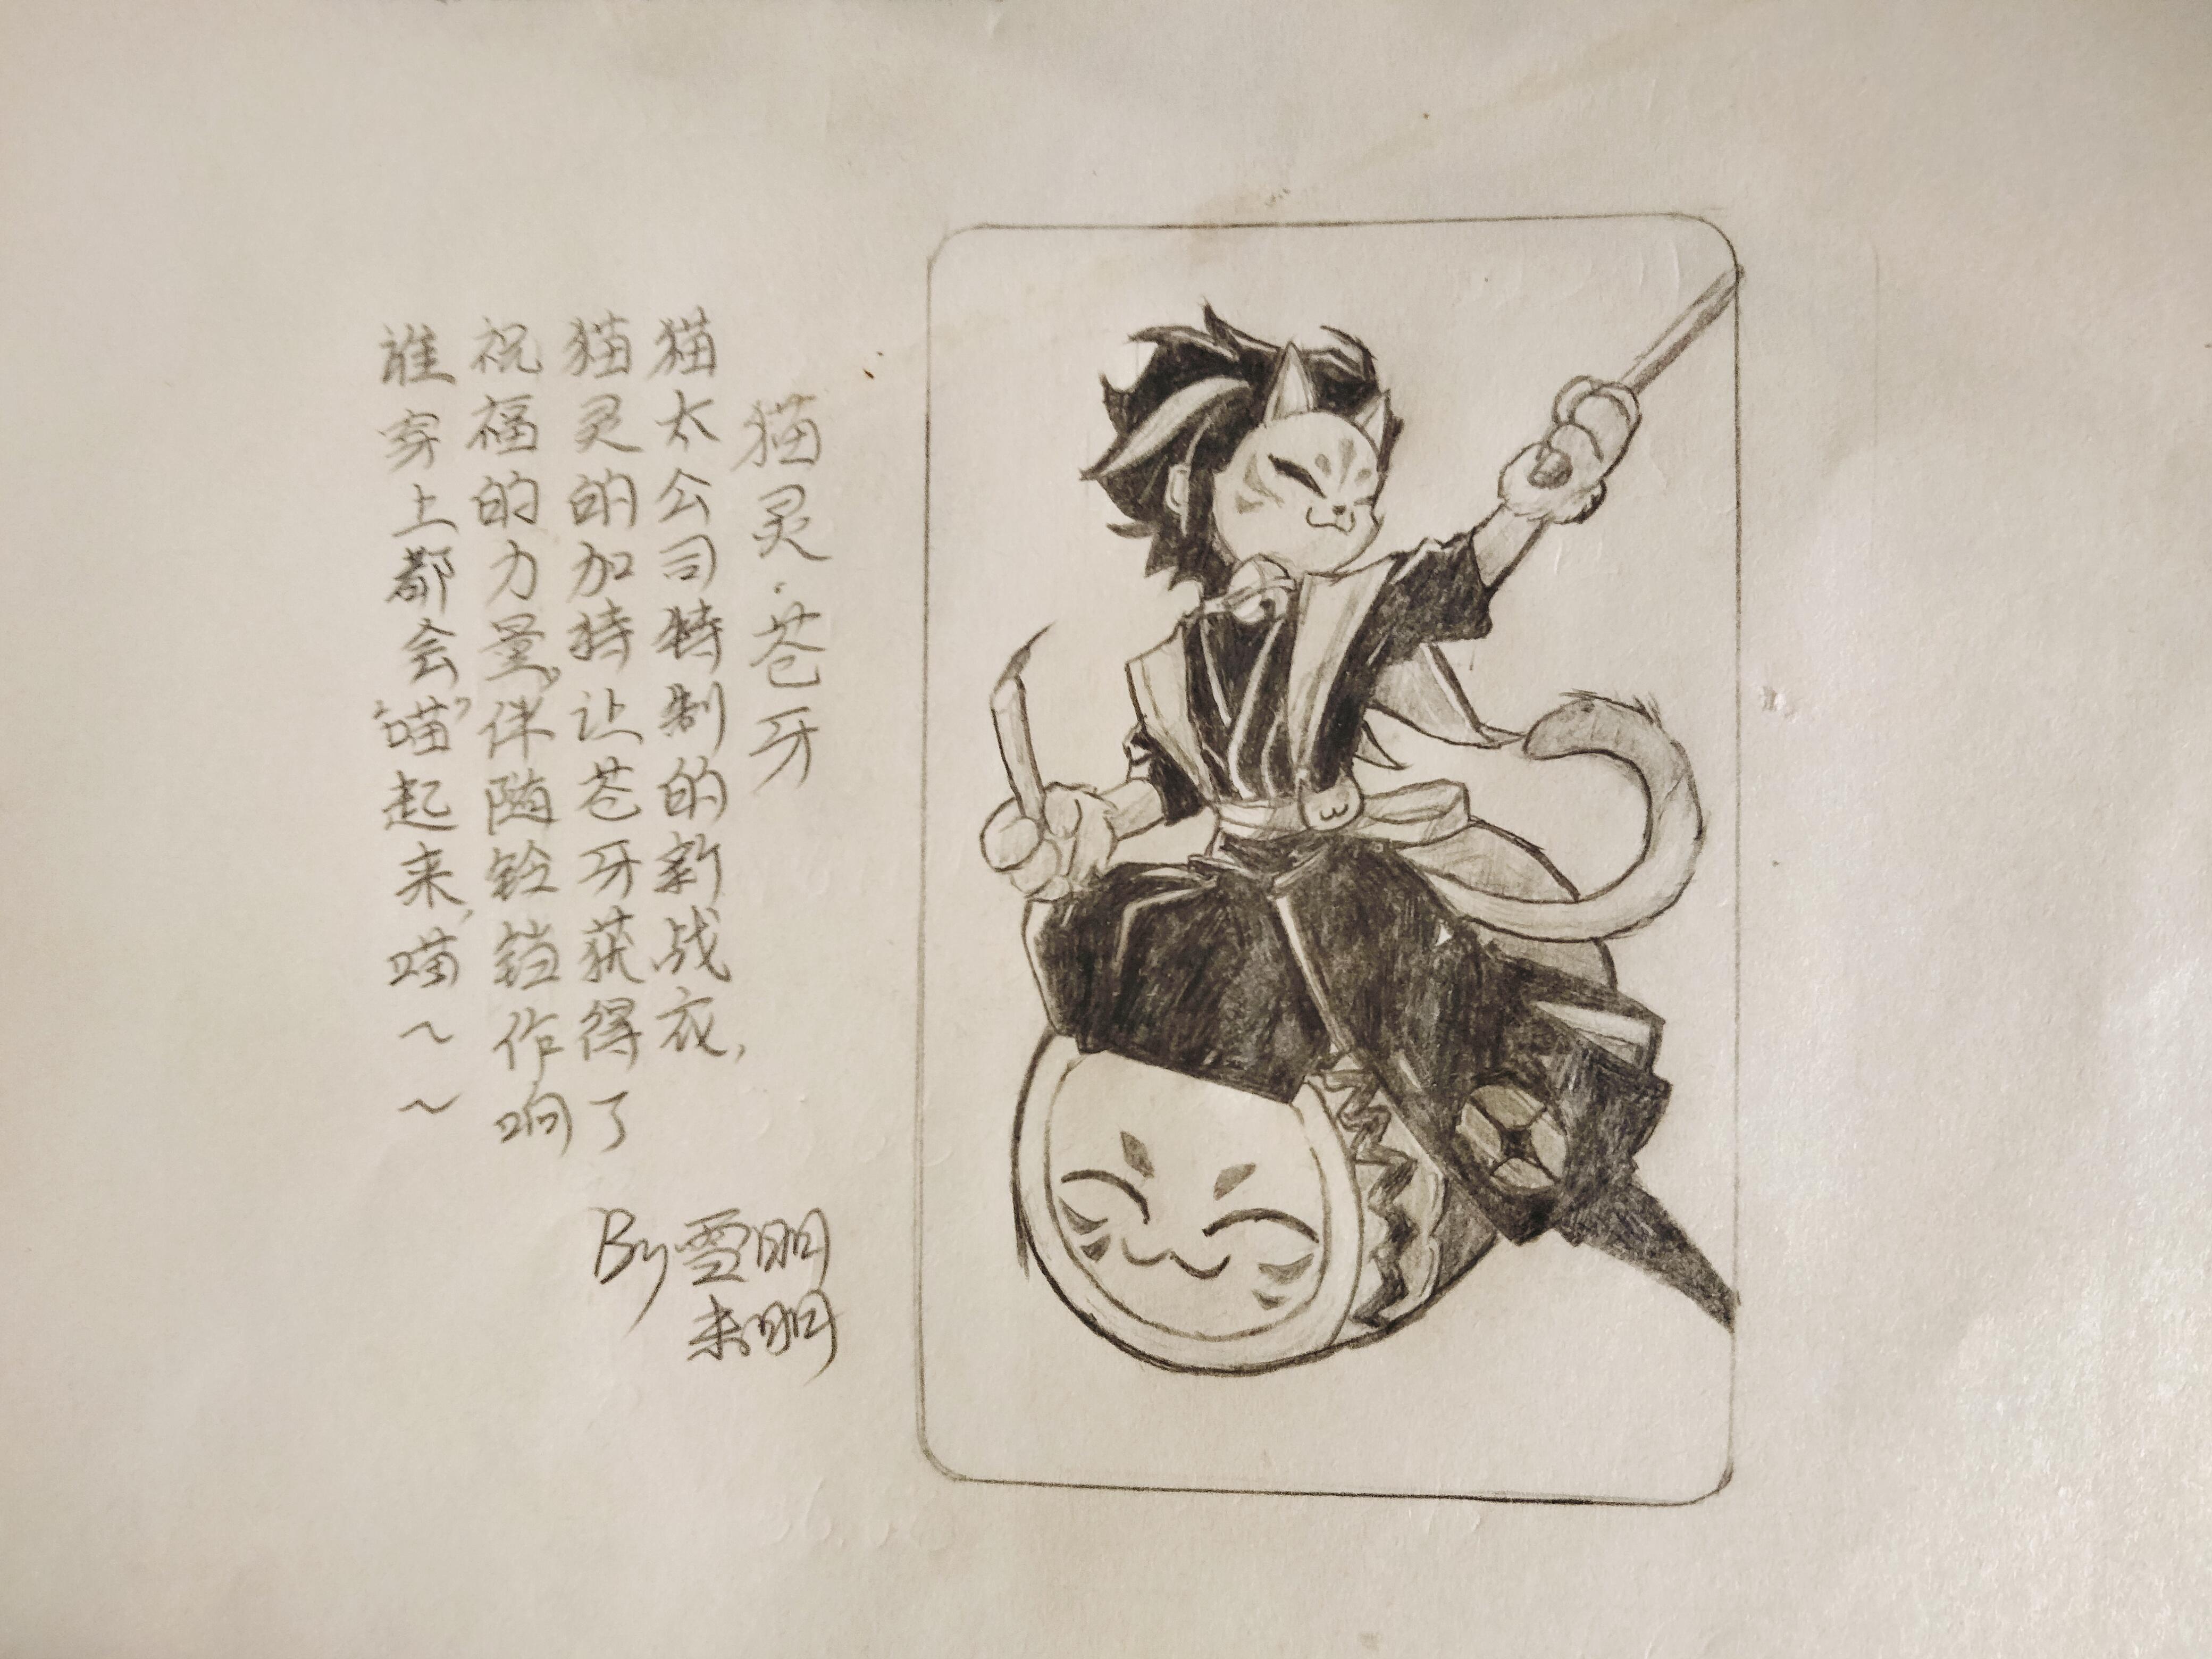 猫灵·苍牙
猫太公司特制的新战衣,
猫灵的加持让苍牙获得了
祝福的力量,伴随铃铛作响
谁穿上都会“喵”起来,喵~~
By雪明
未明